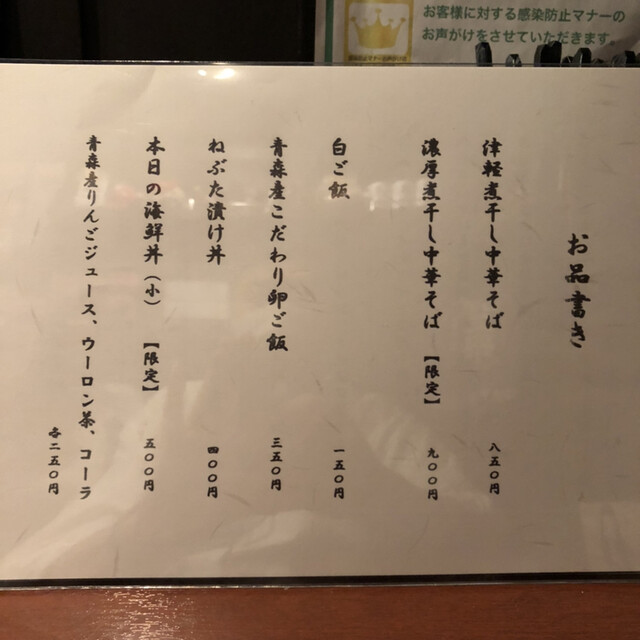 お客様に対する感染防止マナーの
お声がけをさせていただきます。
お品書き
津軽煮干し中華そば 八五〇円
濃厚煮干し中華そば【限定】 九〇〇円
白ご飯 一五〇円
青森産こだわり卵ご飯 三五〇円
ねぶた漬け丼 四〇〇円
本日の海鮮丼（小）【限定】 五〇〇円
青森産りんごジュース、ウーロン茶、コーラ
各二五〇円